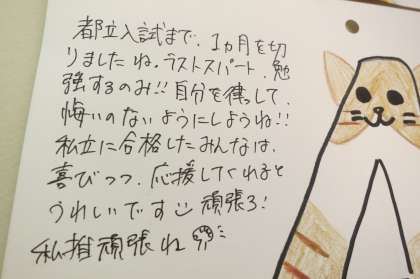 都立入試まで、1ヵ月を切
りましたね。ラストスパート、勉
強するのみ!!自分を律して、
悔いのないようにしようね!!
私立に合格したみんなは、
喜びつつ、応援してくれると
うれしいです 頑張ろ!
私推頑張れ